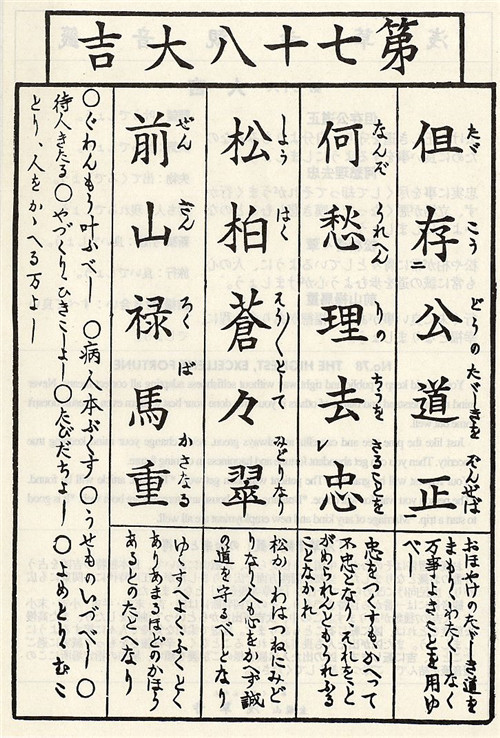 第七十八大吉
但存公道正
たゞこうどうのたゞしきをぞんせば
おほやけのたゞしき道を
まもり、わたくしなく
万事よきことを用ゆ
べし
何愁理去忠
なんぞうれへんりのちうをさることを
忠をつくすもかへって
不忠となり、それをこと
がめられんともうれふる
ことなかれ
松柏蒼々翠
しようはくそう〱としてみどりなり
松かしわはつねにみど
りなり、人も心をかへず誠
の道を守るべしとなり
前山禄馬重
ぜんざんろくばかさなる
ゆくすへよし、ふくとく
ありあまるほどのかほう
あるとのたとへなり
〇ぐわんもう叶ふべし 〇病人本ぶくす〇うせものいづべし〇
待人きたる〇やづくりひきこしよし〇たびだちよし 〇よめとりむこ
とり、人をかゝへる万よし